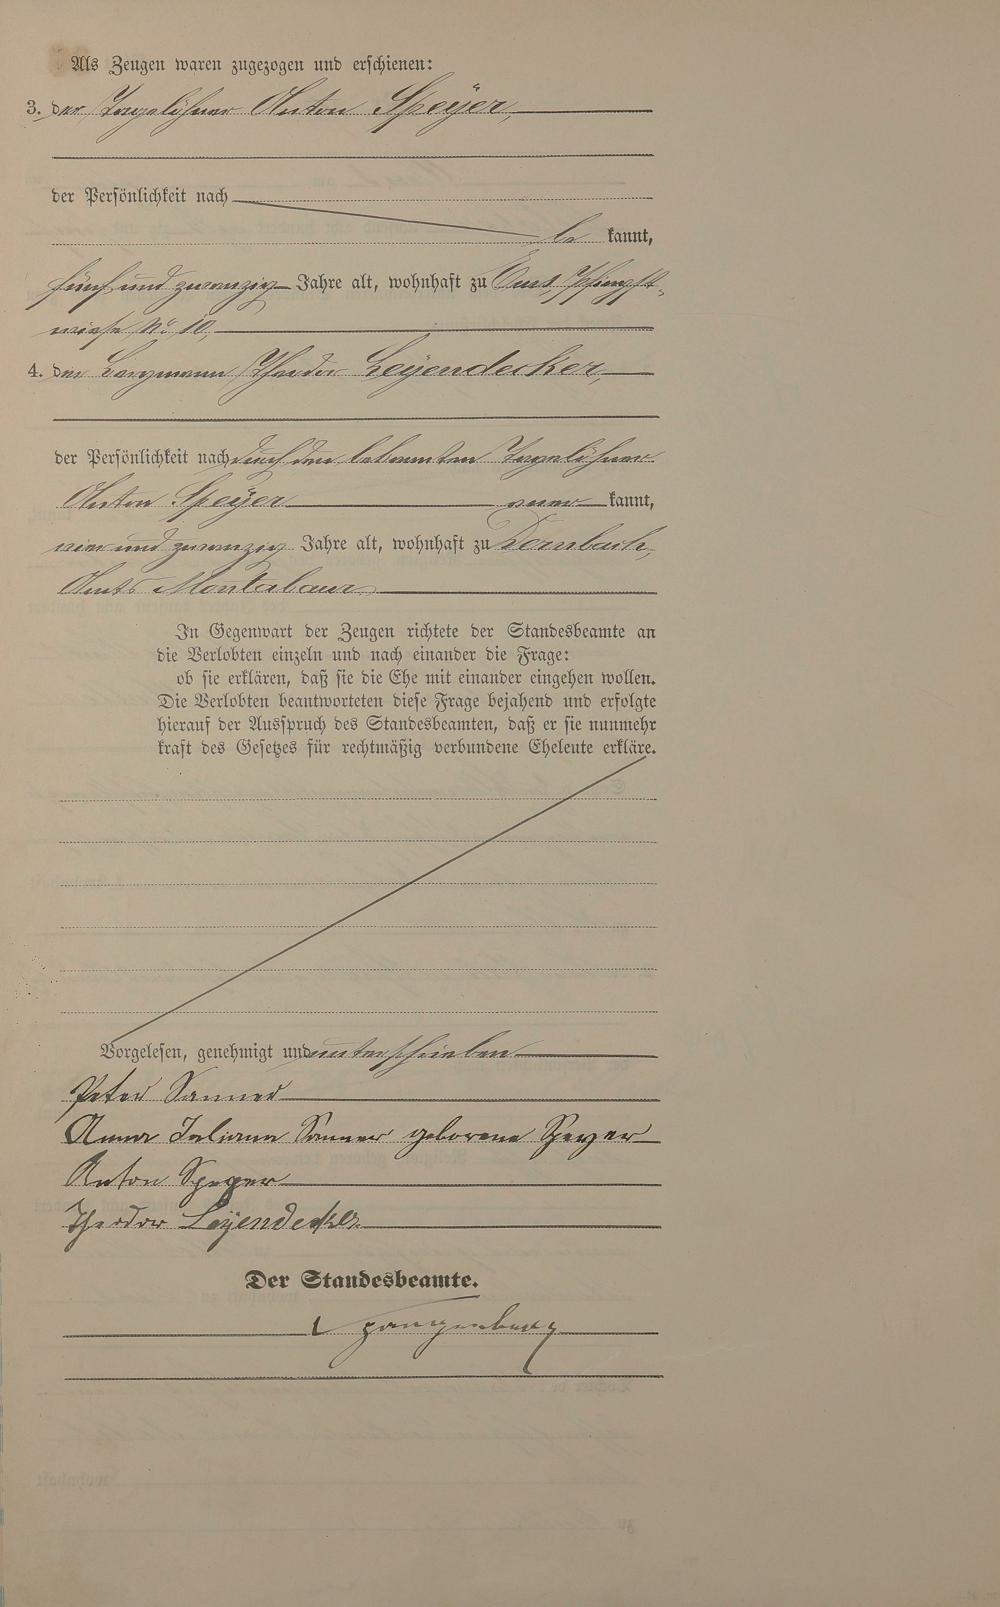 Als Zeugen waren zugezogen und erschienen:
3. der Tagelöhner Anton Speyer,
der Persönlichkeit nach
be kannt,
fünf und zwanzig Jahre alt, wohnhaft zu Ems, Pfingst-
wiese No 10,
4. der Bergmann Theodor Leyendecker,
der Persönlichkeit nach durch den bekannten Tagelöhner
Anton Speyer aner kannt,
vier und zwanzig Jahre alt, wohnhaft zu Dernbach,
Amts Montabaur
In Gegenwart der Zeugen richtete der Standesbeamte an
die Verlobten einzeln und nach einander die Frage:
ob sie erklären, daß sie die Ehe mit einander eingehen wollen.
Die Verlobten beantworteten diese Frage bejahend und erfolgte
hierauf der Ausspruch des Standesbeamten, daß er sie nunmehr
kraft des Gesetzes für rechtmäßig verbundene Eheleute erkläre.
Vorgelesen, genehmigt und unterschrieben
Peter Sanner
Anna Juliana Sanner geborene Speyer
Anton Speyer
Theodor Leyendecker
Der Standesbeamte.
Spangenberg